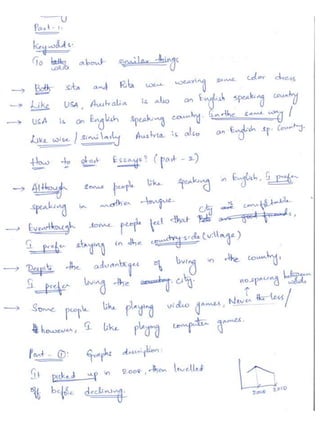 Part-1.
Keywords:
To write about similar things
→ Both Sita and Rita were wearing same color dress
→ Like USA, Australia is also an English speaking country
→ USA is an English speaking country. In the same way /
Like wise / similarly Austria is also an English sp. country.
How to start Essays? (part-2)
→ Although some people like speaking in English, I prefer
speaking in mother-tongue.
→ Eventhough some people feel that city is comfortable
I prefer staying in the country side (village)
→ Despite the advantages of living in the country,
I prefer living the city.
no spacing between words
→ Some people like playing video games, Never-the-less /
however, I like playing computer games.
Part-①: Graphs description:
It picked up in 2008, then levelled
off before declining.
2008 2010